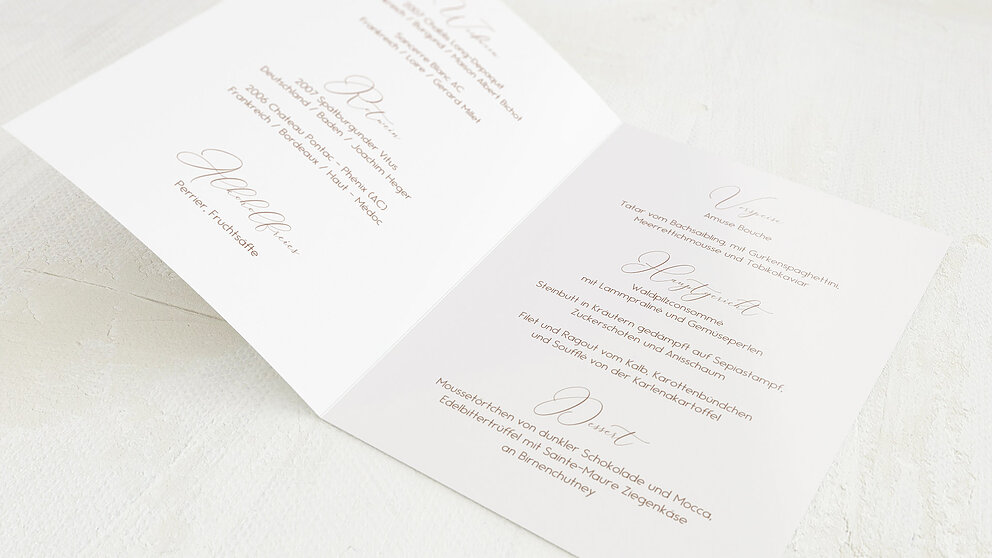 2007 Chablis Long-Depaquit
Frankreich / Burgund / Maison Albert Bichot
Sancerre Blanc AC
Frankreich / Loire / Gerard Millet
Rotwein
2007 Spätburgunder Vitus
Deutschland / Baden / Joachim Heger
2006 Chateau Pontac – Phenix (AC)
Frankreich / Bordeaux / Haut – Medoc
Alkoholfreies
Perrier, Fruchtsäfte
Vorspeise
Amuse Bouche
Tatar vom Bachsaibling, mit Gurkenspaghettini,
Meerrettichmousse und Tobikokaviar
Hauptgericht
Waldpilzconsommé
mit Lammpraline und Gemüseperlen
Steinbutt in Kräutern gedämpft auf Sepiastampf,
Zuckerschoten und Anisschaum
Filet und Ragout vom Kalb, Karottenbündchen
und Soufflé von der Karlenakartoffel
Dessert
Moussetörtchen von dunkler Schokolade und Mocca,
Edelbittertrüffel mit Sainte-Maure Ziegenkäse
an Birnenchutney